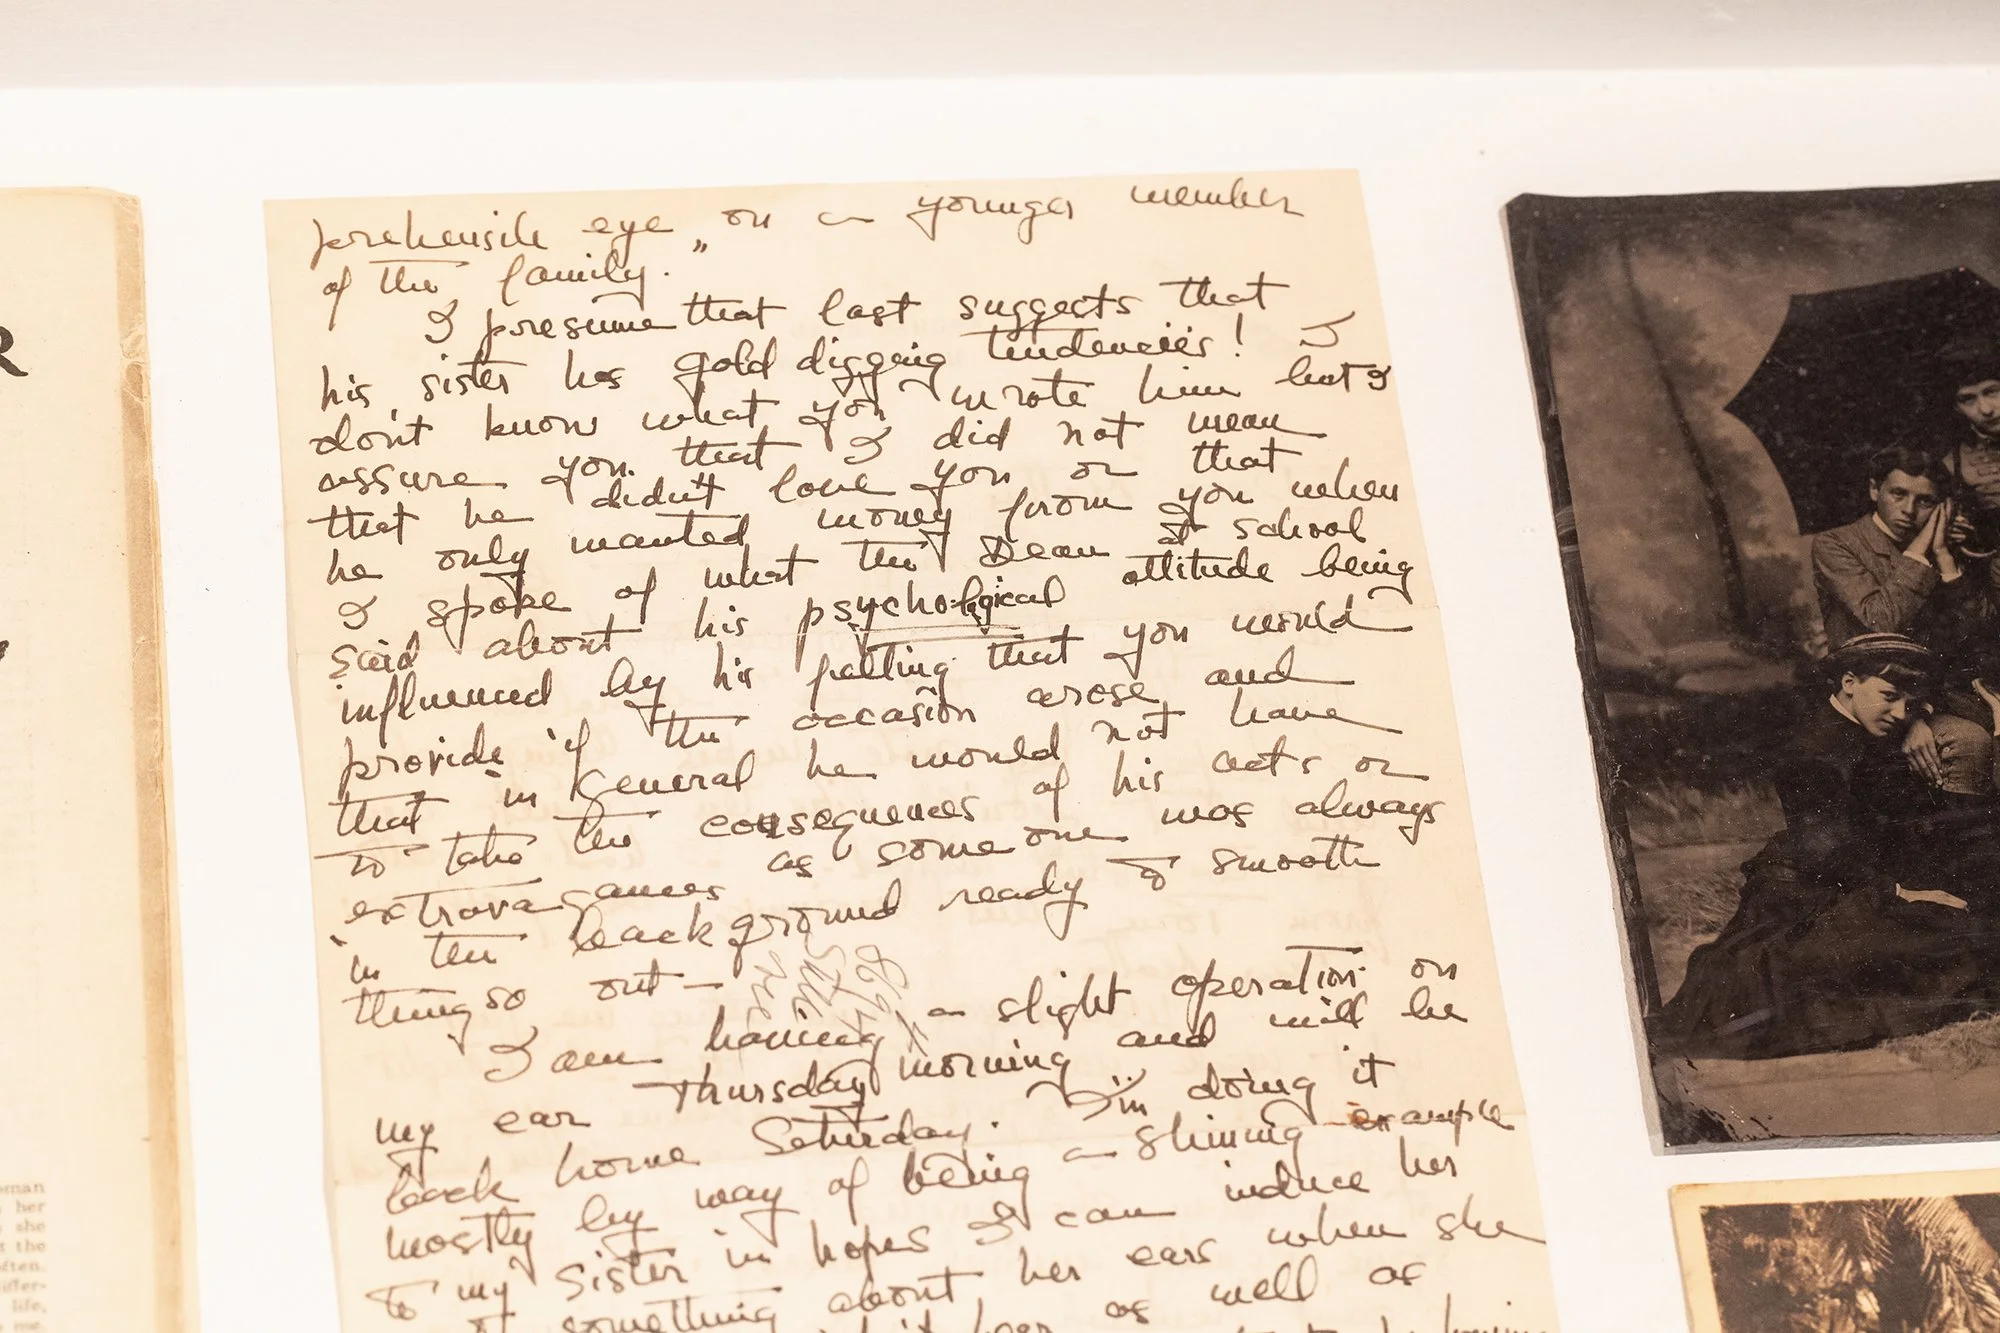 R
oman
her
she
the
often.
differ-
life,
me,
prehensile eye on a younger member
of the family."
I presume that last suggests that
his sister has gold digging tendencies! I
don't know what you wrote him but I
assure you that I did not mean
that he didn't love you or that
he only wanted money from you when
I spoke of what the Dean at school
said about his psychological attitude being
influenced by his feeling that you would
provide if the occasion arose and
that in general he would not have
to take the consequences of his acts or
extravagances as some one was always
in the background ready to smooth
things out—
I am having a slight operation on
my ear Thursday morning and will be
back home Saturday. I'm doing it
mostly by way of being a shining example
to my sister in hopes I can induce her
something about her ears when she
hear as well as